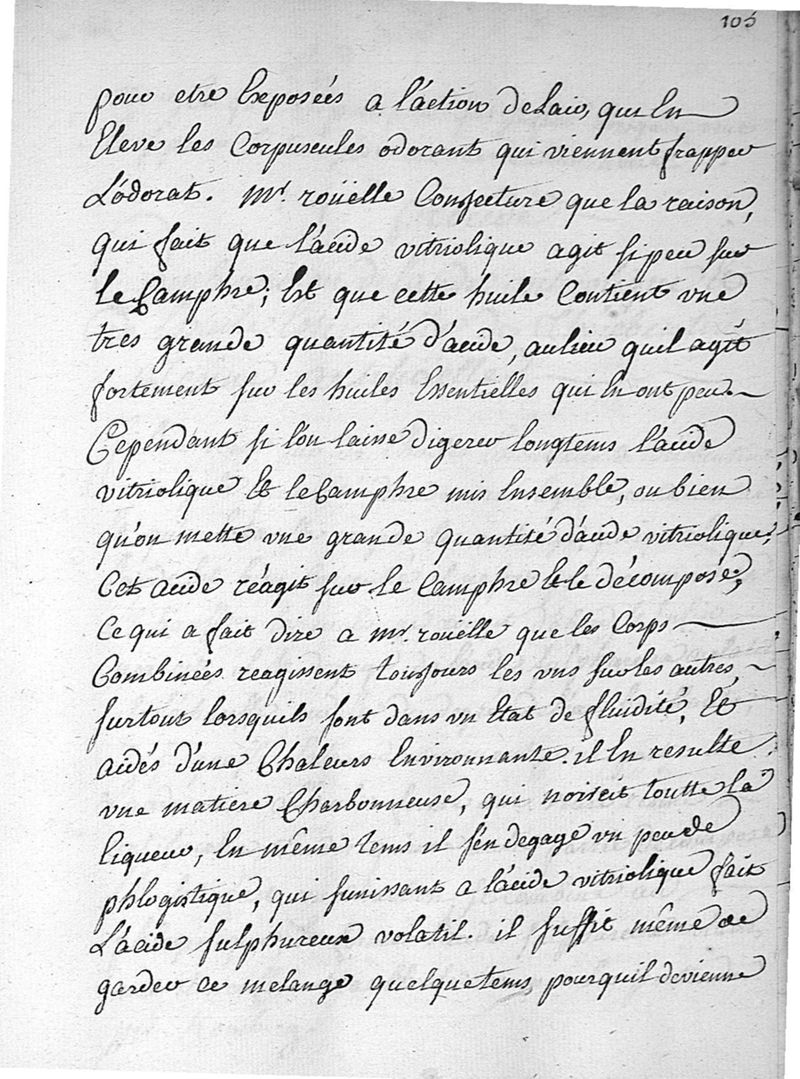 105
pour etre Exposées a l'áction delair, qui En
Eleve les Corpuscules odorant qui viennent frapper
L'ódorat. Mr. roüelle Conjecture que la raison,
qui fait que l'ácide vitriolique agit si peu sur
le Camphre; Est que cette huile Contient vne
tres grande quantité d'ácide, aulieu quil agît
fortement sur les huiles Essentielles qui En ont peu.
Cependant si l'ón laisse digerer longtems l'ácide
vitriolique Et le Camphre mis Ensemble, ou bien
qu'on mette vne grande quantité d'ácide vitriolique,
Cet acide réagit sur le Camphre Et le décompose,
Ce qui a fait dire a mr. roüelle que les Corps
Combineés reagissent toujours les vns sur les autres,
surtout lorsquils sont dans vn Etat de fluidité, Et
aidés d'úne Chaleurs Environnante. il En resulte
vne matiere Charbonneuse, qui noircit toutte la
liqueur, En même tems il s'én degage vn peu de
phlogistique, qui sunissant a l'ácide vitriolique fait
L'ácide sulphureux volatil. il suffit même de
garder ce melange quelque tems, pourquil devienne